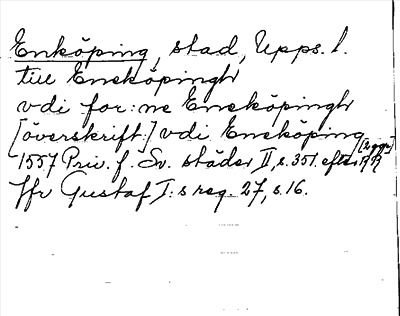 Enköping, stad, Upps. l.
till Eneköpingh
vdi for:ne Eneköpingh
[överskrift:] vdi Eneköping [2 ggr]
1557 Priv. f. Sv. städer II, s. 351. efter RR
Jfr Gustaf I:s reg. 27, s. 16.